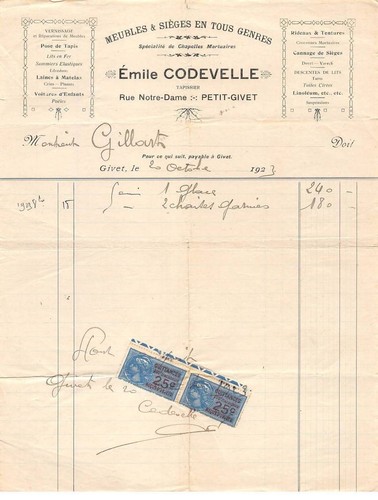 MEUBLES & SIÈGES EN TOUS GENRES
Spécialité de Chapelles Mortuaires
Émile CODEVELLE
TAPISSIER
Rue Notre-Dame :-: PETIT-GIVET
VERNISSAGE
et Réparations de Meubles
Pose de Tapis
Lits en Fer
Sommiers Elastiques
Laines à Matelas
Crins - Plumes
Voitures d'Enfants
Poufres
Rideaux & Tentures
Couronnes Mortuaires
Cannage de Sièges
Duvet - Kapock
DESCENTES DE LITS
Tapis
Toiles Cirées
Linoléum, etc., etc.
Doit
Pour ce qui suit, payable à Givet.
Givet, le 20 Octobre 1923
15 1 glace 240 -
2 chaises garnies 180 -
QUITTANCES
25c
QUITTANCES
25c
Givet le 20
Codevelle